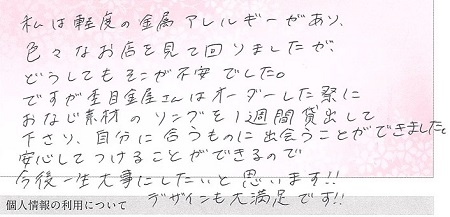 私は軽度の金属アレルギーがあり、
色々なお店を見て回りましたが、
どうしてもそこが不安でした。
ですが杢目金屋さんはオーダーした祭に
おなじ素材のリングを1週間貸出して
下さり、自分に合うものに出会うことができました。
安心してつけることができるので
今後一生大事にしたいと思います!!
デザインも大満足です!!
個人情報の利用について